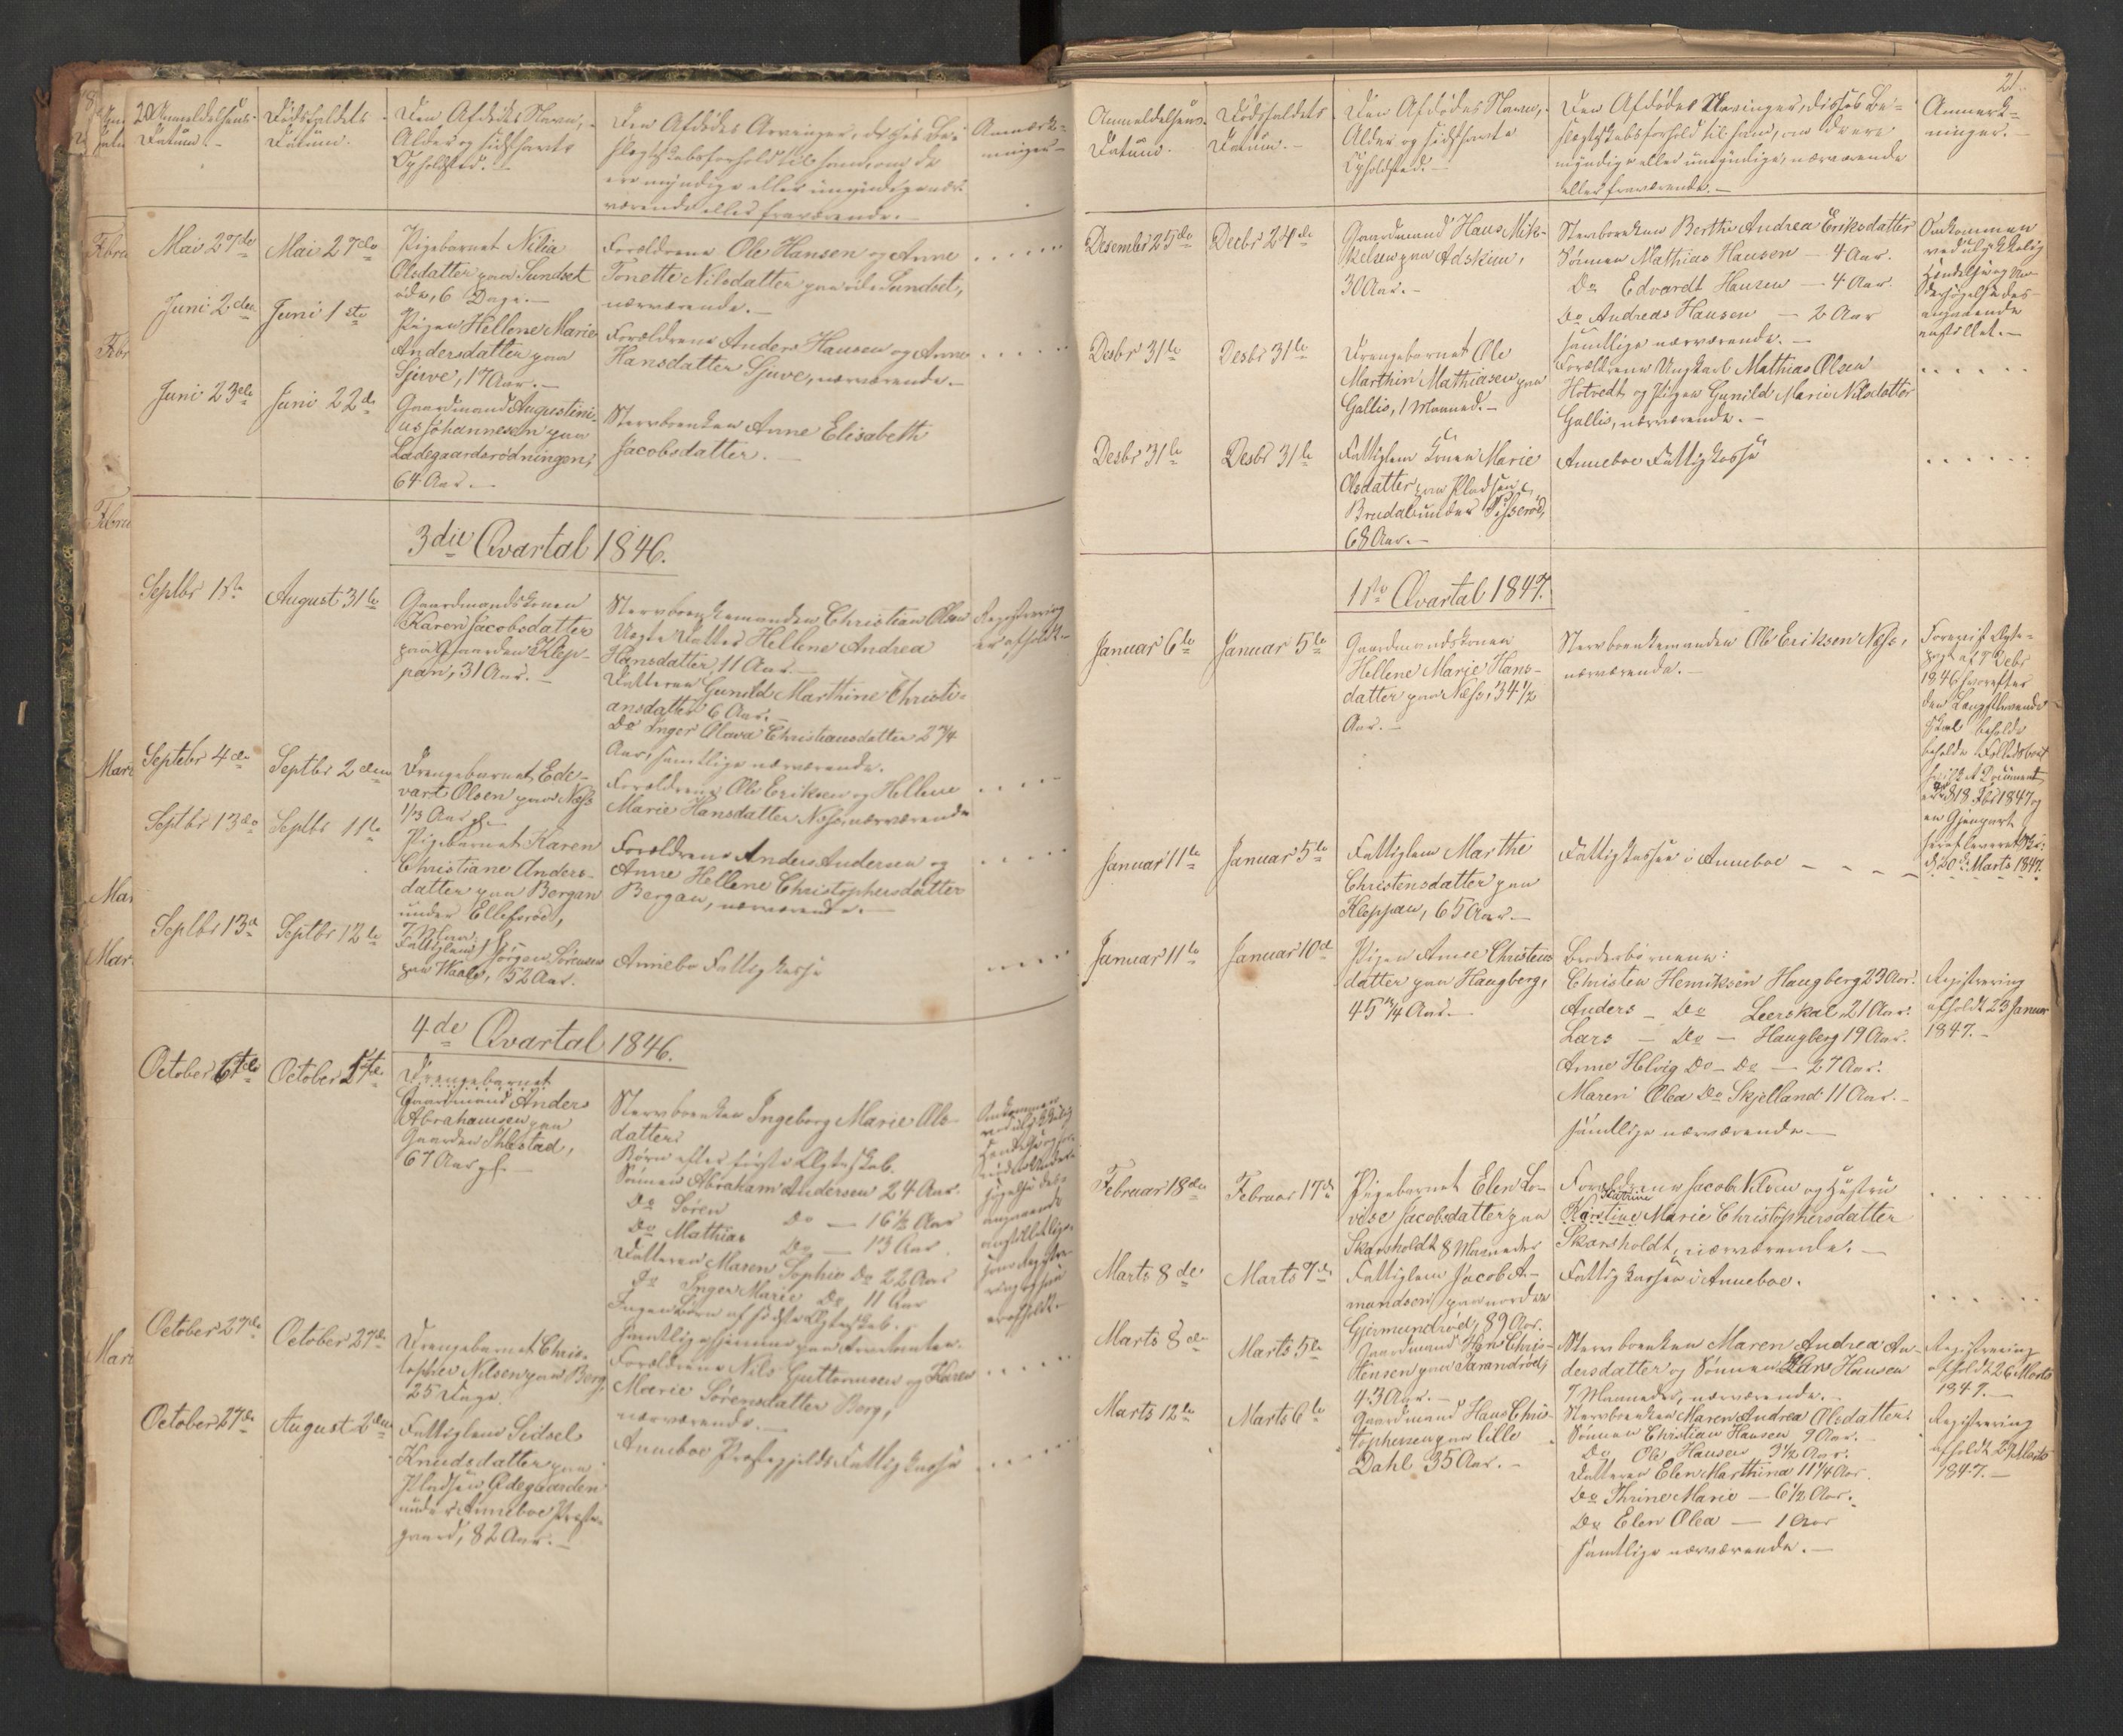 20
Anmeldelsens
Datum.
Dødsfaldets
Datum.
Den Afdødes Navn,
Alder og sidst havte
Opholdsted.
Den Afdødes Arvinger, disses Be-
slægtskabsforhold til ham, om de
ere myndige eller umyndige, nær-
værende eller fraværende.
Anmærk-
ninger
Mai 27de
Mai 27de
Pigebarnet Nilia
Olsdatter paa Sundset
øde, 6 Dage.
Forældrene Ole Hansen og Anne
Tonette Nilsdatter paa øde Sundset,
nærværende.
Juni 2den
Juni 1ste
Pigen Hellene Marie
Andersdatter paa
Sjuve, 17 Aar.
Forældrene Anders Hansen og Anne
Hansdatter Sjuve, nærværende.
Juni 23de
Juni 22de
Gaardmand Augustini-
us Johannesen paa
Ladegaardsrødningen,
64 Aar.
Stervboenken Anne Elisabeth
Jacobsdatter.
3die Qvartal 1846.
Septbr 1ste
August 31te
Gaardmandskonen
Karen Jacobsdatter
paa Gaarden Klep-
pan, 31 Aar.
Stervboenkemanden Christian Olsen
Uægte Datter Hellene Andrea
Hansdatter 11 Aar.
Datteren Gunild Marthine Christi-
ansdatter 6 Aar.
Do Inger Olava Christiansdatter 2 3/4
Aar, samtlige nærværende.
Registrering
er afholdt
Septbr 4de
Septbr 2den
Drengebarnet Ede-
vart Olsen paa Næss
1/3 Aar gl.
Forældrene Ole Eriksen og Hellene
Marie Hansdatter Næss, nærværende
Septbr 13de
Septbr 11te
Pigebarnet Karen
Christiane Anders-
datter paa Borgan
under Ellefsrød,
Forældrene Anders Andersen og
Anne Hellene Christophersdatter
Borgan, nærværende.
Septbr 13de
Septbr 12te
Fattiglem Jørgen Sørensen
paa Waale, 52 Aar.
Annebo Fattigkasse
4de Qvartal 1846.
October 6te
October 5te
Drengebarnet
Gaardmand Anders
Abrahamsen paa
Gaarden Ihlestad,
67 Aar gl.
Stervboenken Ingeborg Marie Ols-
datter
Børn efter første Ægteskab.
Sønnen Abraham Andersen 24 Aar.
Do Søren Do — 16 1/2 Aar
Do Mathias Do — 13 Aar
Datteren Maren Sophie Do 22 Aar
Do Inger Marie Do 11 Aar
Ingen Børn af sidste Ægteskab.
Samtlige hjemme paa
Omkommen
ved ulykkelig
October 27de
October 27de
Drengebarnet Chris-
topher Nilsen paa Borg,
25 Dage
Forældrene Nils Guttormsen og Karen
Marie Sørensdatter Borg,
nærværende.
October 27de
August 2den
Fattiglem Sidsel
Knudsdatter paa
Pladsen Ødegaarden
under Anneboe Præste-
gaard, 82 Aar.
Anneboe Præstegjelds Fattigkasse
21.
Anmeldelsens
Datum.
Dødsfaldets
Datum.
Den Afdødes Navn,
Alder og sidst havte
Opholdsted.
Den Afdødes Arvinger, disses Be-
slægtskabsforhold til ham, om de ere
myndige eller umyndige, nærværende
eller fraværende.
Anmærk-
ninger.
Desember 25de
Decbr 24de
Gaardmand Hans Mik-
kelsen paa Adskim,
30 Aar.
Stervboenken Berthe Andrea Eriksdatter
Sønnen Mathias Hansen — 4 Aar.
Do Edvardt Hansen — 4 Aar.
Do Andreas Hansen — 2 Aar
samtlige nærværende.
Omkommen
ved ulykkelig
Hændelse og Un-
dersøgelse des-
angaaende
anstillet.
Desbr 31te
Desbr 31te
Drengebarnet Ole
Marthin Mathiasen paa
Gallis, 1 Maaned.
Forældrene Ungkarl Mathias Olsen
Hotvedt og Pigen Gunild Marie Nilsdatter
Gallis, nærværende.
Desbr 31te
Desbr 31te
Fattiglem Konen Marie
Olsdatter paa Pladsen
Brudal under Sisserød,
68 Aar.
Anneboe Fattigkasse
1ste Qvartal 1847.
Januar 6te
Januar 5te
Gaardmandskonen
Hellene Marie Hans-
datter paa Næss, 34 1/2
Aar.
Stervboenkemanden Ole Eriksen Næss,
nærværende.
Forevist Ægte-
pagt af 7 Debr
1846 hvorefter
den Længstlevende
skal beholde
beholde Fællesboet
hvilket Document
18 Fbr 1847 og
en Gjenpart
heraf leveret
d. 20de Marts 1847.
Januar 11te
Januar 5te
Fattiglem Marthe
Christensdatter paa
Kleppan, 65 Aar.
Fattigkassen i Anneboe
Januar 11te
Januar 10de
Pigen Anne Christens
datter paa Haugberg,
45 3/4 Aar.
Broderbørnene:
Christen Henriksen Haugberg 23 Aar.
Anders — Do Leerskal 21 Aar.
Lars — Do — Haugberg 19 Aar.
Anne Helvig Do — Do — 27 Aar.
Maren Olea Do Skjelland 11 Aar.
samtlige nærværende.
Registrering
afholdt 23 Januar
1847.
Februar 18de
Februar 17de
Pigebarnet Elen Lo-
vise Jacobsdatter paa
Skarsholdt 8 Maaneder
Forældrene Jacob Nilsen og Hustru
Kathrine
Karoline Marie Christophersdatter
Skarsholdt, nærværende.
Marts 8de
Marts 7de
Fattiglem Jacob A-
mundsen paa nordre
Gjermundrød, 89 Aar.
Fattigkassen i Anneboe.
Marts 8de
Marts 5te
Gaardmand Hans Chris-
tensen paa Tarandrød,
43 Aar.
Stervboenken Maren Andrea An-
dersdatter og Sønnen Lars Hansen
7 Maaneder, nærværende.
Registrering
afholdt 26 Marts
1847.
Marts 12te
Marts 6te
Gaardmand Hans Chris-
tophersen paa lille
Dahl 35 Aar.
Stervboenken Maren Andrea Olsdatter.
Sønnen Christian Hansen 9 Aar.
Do Ole Hansen 3 1/2 Aar.
Datteren Elen Marthina 11 1/4 Aar.
Do Thrine Marie — 6 1/2 Aar.
Do Elen Olea — 1 Aar
samtlige nærværende.
Registrering
afholdt 27 Marts
1847.